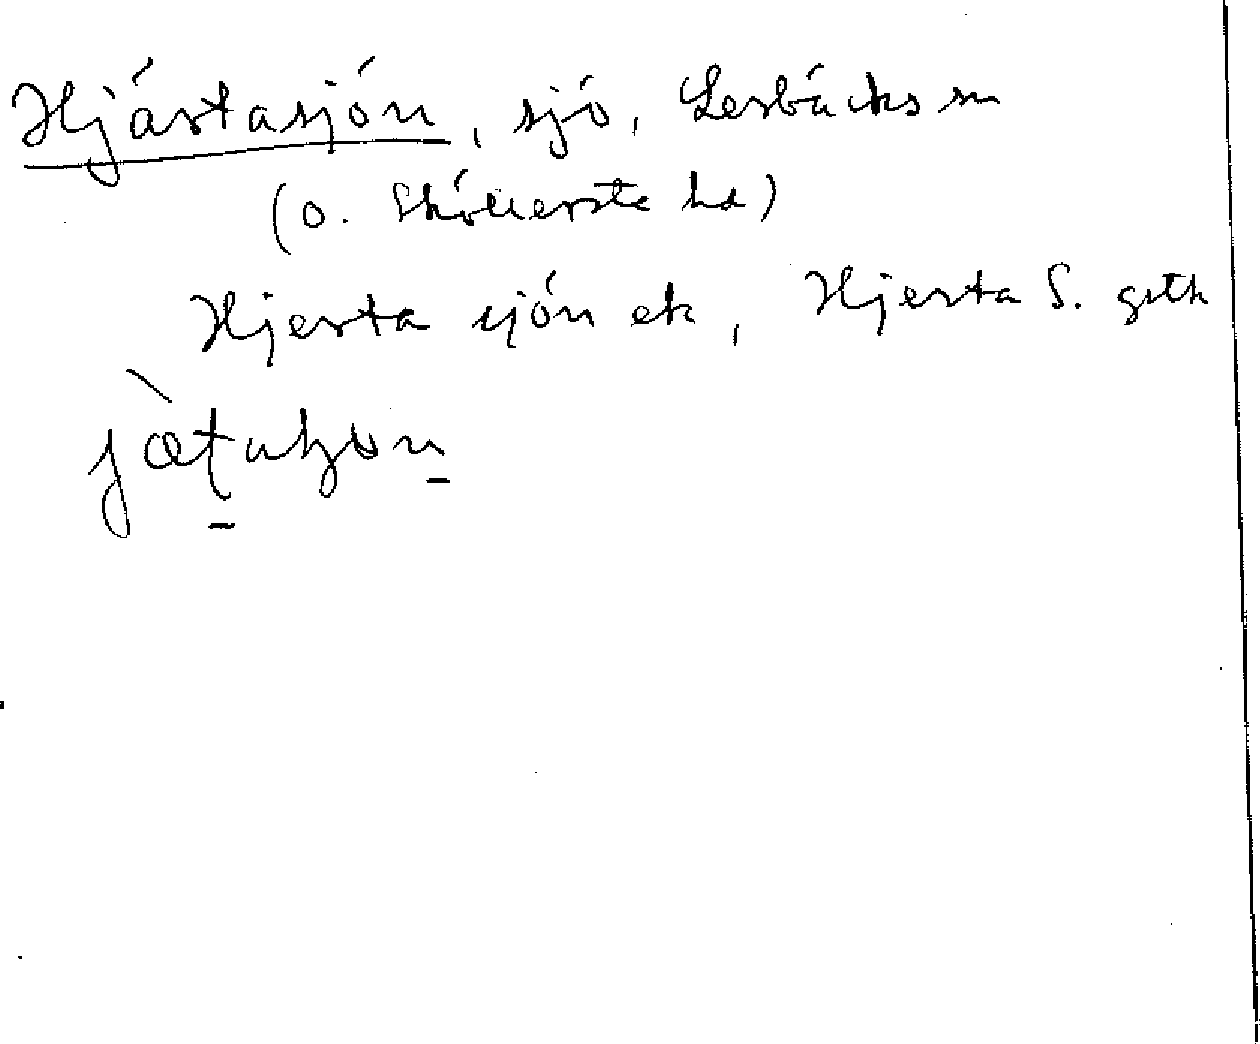 Hjärtasjön, sjö, Lerbäcks sn
(o. Sköllersta hd)
Hjerta sjön ek, Hjerta S. gstk